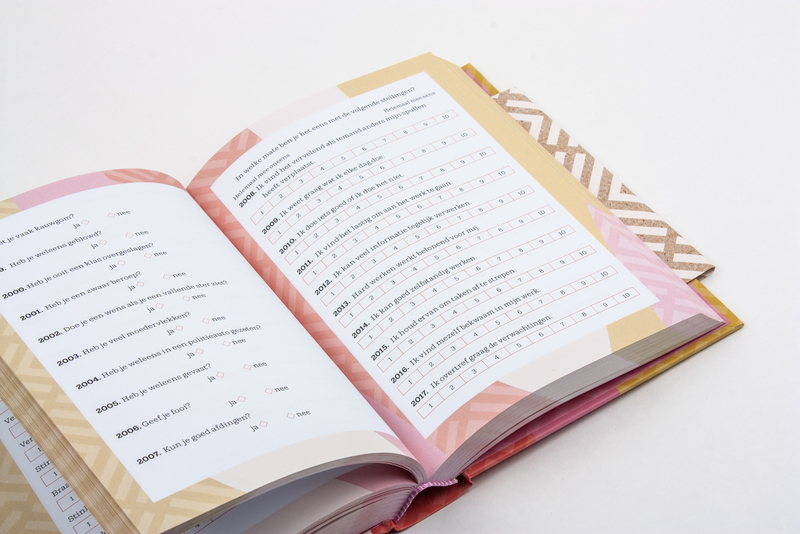 et je vaak kauwgom?
ja nee
9. Heb je weleens geblowd?
ja nee
2000. Heb je ooit een klas overgeslagen?
ja nee
2001. Heb je een zwaar beroep?
ja nee
2002. Doe je een wens als je een vallende ster ziet?
ja nee
2003. Heb je veel moedervlekken?
ja nee
2004. Heb je weleens in een politieauto gezeten?
ja nee
2005. Heb je weleens gevast?
ja nee
2006. Geef je fooi?
ja nee
2007. Kun je goed afdingen?
ja nee
In welke mate ben je het eens met de volgende stellingen?
Helemaal mee oneens Helemaal mee eens
2008. Ik vind het vervelend als iemand anders mijn spullen
heeft verplaatst.
1 2 3 4 5 6 7 8 9 10
2009. Ik weet graag wat ik elke dag doe.
1 2 3 4 5 6 7 8 9 10
2010. Ik doe iets goed of ik doe het niet.
1 2 3 4 5 6 7 8 9 10
2011. Ik vind het lastig om aan het werk te gaan.
1 2 3 4 5 6 7 8 9 10
2012. Ik kan veel informatie tegelijk verwerken.
1 2 3 4 5 6 7 8 9 10
2013. Hard werken werkt belonend voor mij.
1 2 3 4 5 6 7 8 9 10
2014. Ik kan goed zelfstandig werken.
1 2 3 4 5 6 7 8 9 10
2015. Ik houd ervan om taken af te strepen.
1 2 3 4 5 6 7 8 9 10
2016. Ik vind mezelf bekwaam in mijn werk.
1 2 3 4 5 6 7 8 9 10
2017. Ik overtref graag de verwachtingen.
1 2 3 4 5 6 7 8 9 10
Ver
1
Stin
1
Braz
1
Stink
1